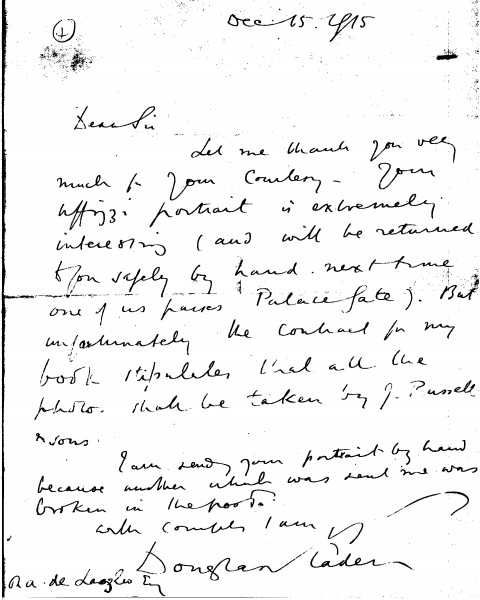 Dec 15. 1915
Dear Sir
Let me thank you very
much for your courtesy - Your
Uffizzi portrait is extremely
interesting (and will be returned
to you safely by hand next time
one of us passes Palace Gate). But
unfortunately the contract for my
book stipulates that all the
photos. shall be taken by J. Russell
& sons.
I am sending your portrait by hand
because another which was sent me was
broken in the post.
with compts I am
Douglas Sladen
de Laszlo Esq